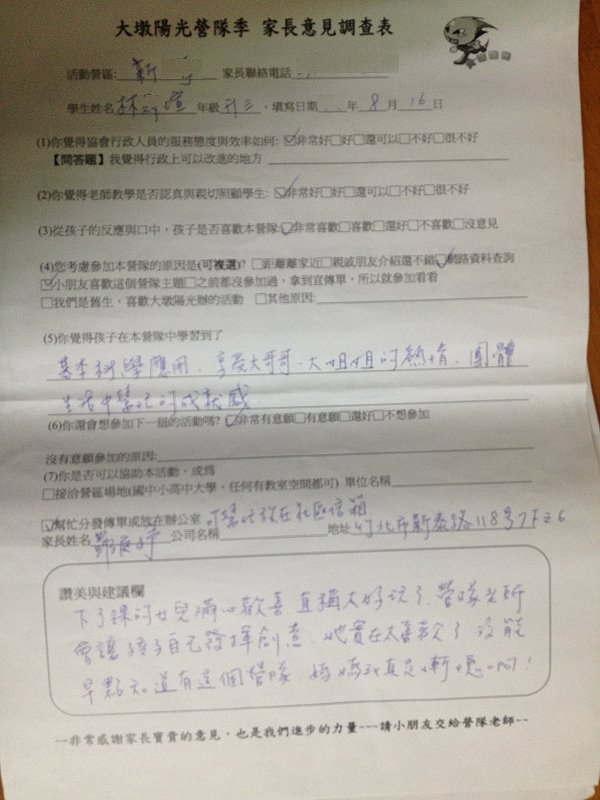 大墩陽光營隊季 家長意見調查表
活動營區: 新 家長聯絡電話
學生姓名 林 瑄 年級 升三 ,填寫日期 年 8 月 16 日
(1)你覺得協會行政人員的服務態度與效率如何: ☑非常好□好□還可以□不好□很不好
【問答題】我覺得行政上可以改進的地方
(2)你覺得老師教學是否認真與親切照顧學生: ☑非常好□好□還可以□不好□很不好
(3)從孩子的反應與口中,孩子是否喜歡本營隊: ☑非常喜歡□喜歡□還好□不喜歡□沒意見
(4)您考慮參加本營隊的原因是(可複選)? □距離離家近□親戚朋友介紹還不錯☑網路資料查詢
☑小朋友喜歡這個營隊主題□之前都沒參加過,拿到宣傳單,所以就參加看看
□我們是舊生,喜歡大墩陽光辦的活動 □其他原因:
(5)你覺得孩子在本營隊中學習到了
基本科學應用、享受大哥哥、大姐姐的熱情、團體
生活中幫忙的成就感
(6)你還會想參加下一屆的活動嗎? ☑非常有意願□有意願□還好□不想參加
沒有意願參加的原因:
(7)你是否可以協助本活動,成為
□接洽營區場地(國中小高中大學,任何有教室空間都可) 單位名稱
☑幫忙分發傳單或放在辦公室 可幫忙放在社區信箱
家長姓名 公司名稱 地址 竹北市新泰路118號7F之6
讚美與建議欄
下了課的女兒滿心歡喜 直稱太好玩了、營隊
會讓孩子自己發揮創意、她實在太喜歡了、沒能
早點知道有這個營隊、媽媽我真是慚愧啊!
~~非常感謝家長寶貴的意見,也是我們進步的力量~~~請小朋友交給營隊老師~~